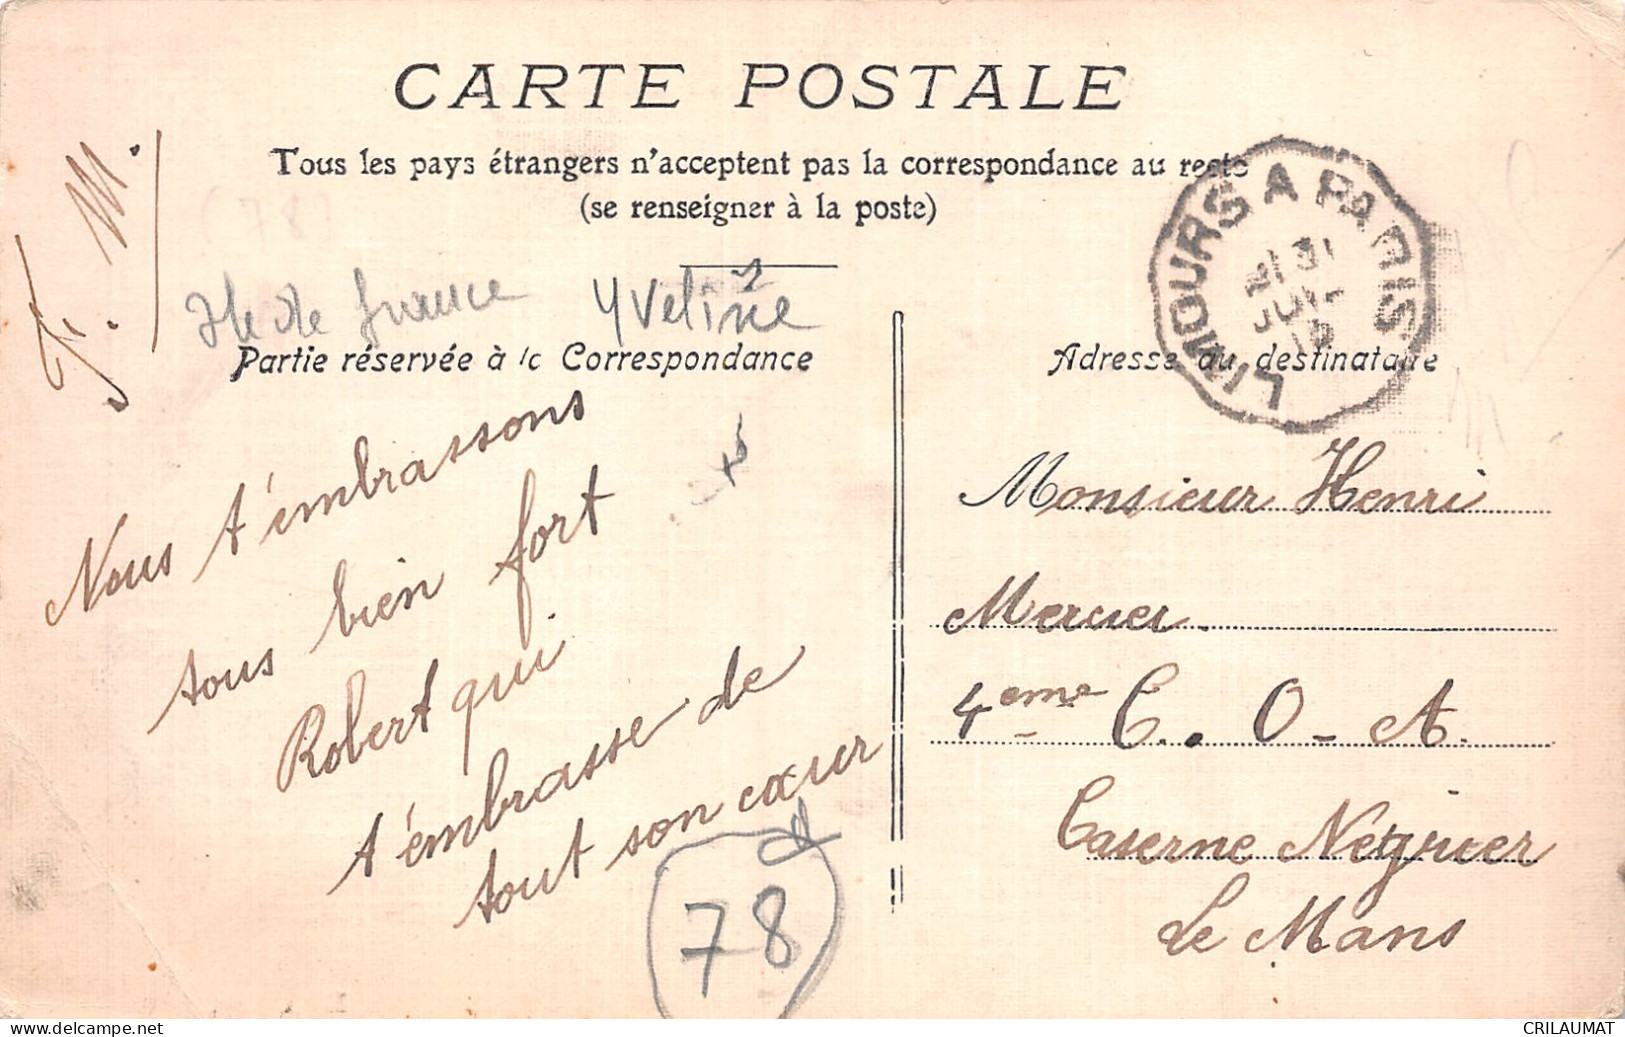 CARTE POSTALE
Tous les pays étrangers n'acceptent pas la correspondance au recto
(se renseigner à la poste)
(78)
F. M.
Ile de france Yveline
Partie réservée à la Correspondance
Nous t'embrassons
tous bien fort
Robert qui
t'embrasse de
tout son cœur
78
LIMOURS A PARIS
31
JUIL
Adresse du destinataire
Monsieur Henri
Mercier.
4eme C. O - A.
Caserne Négrier
Le Mans
www.delcampe.net
CRILAUMAT